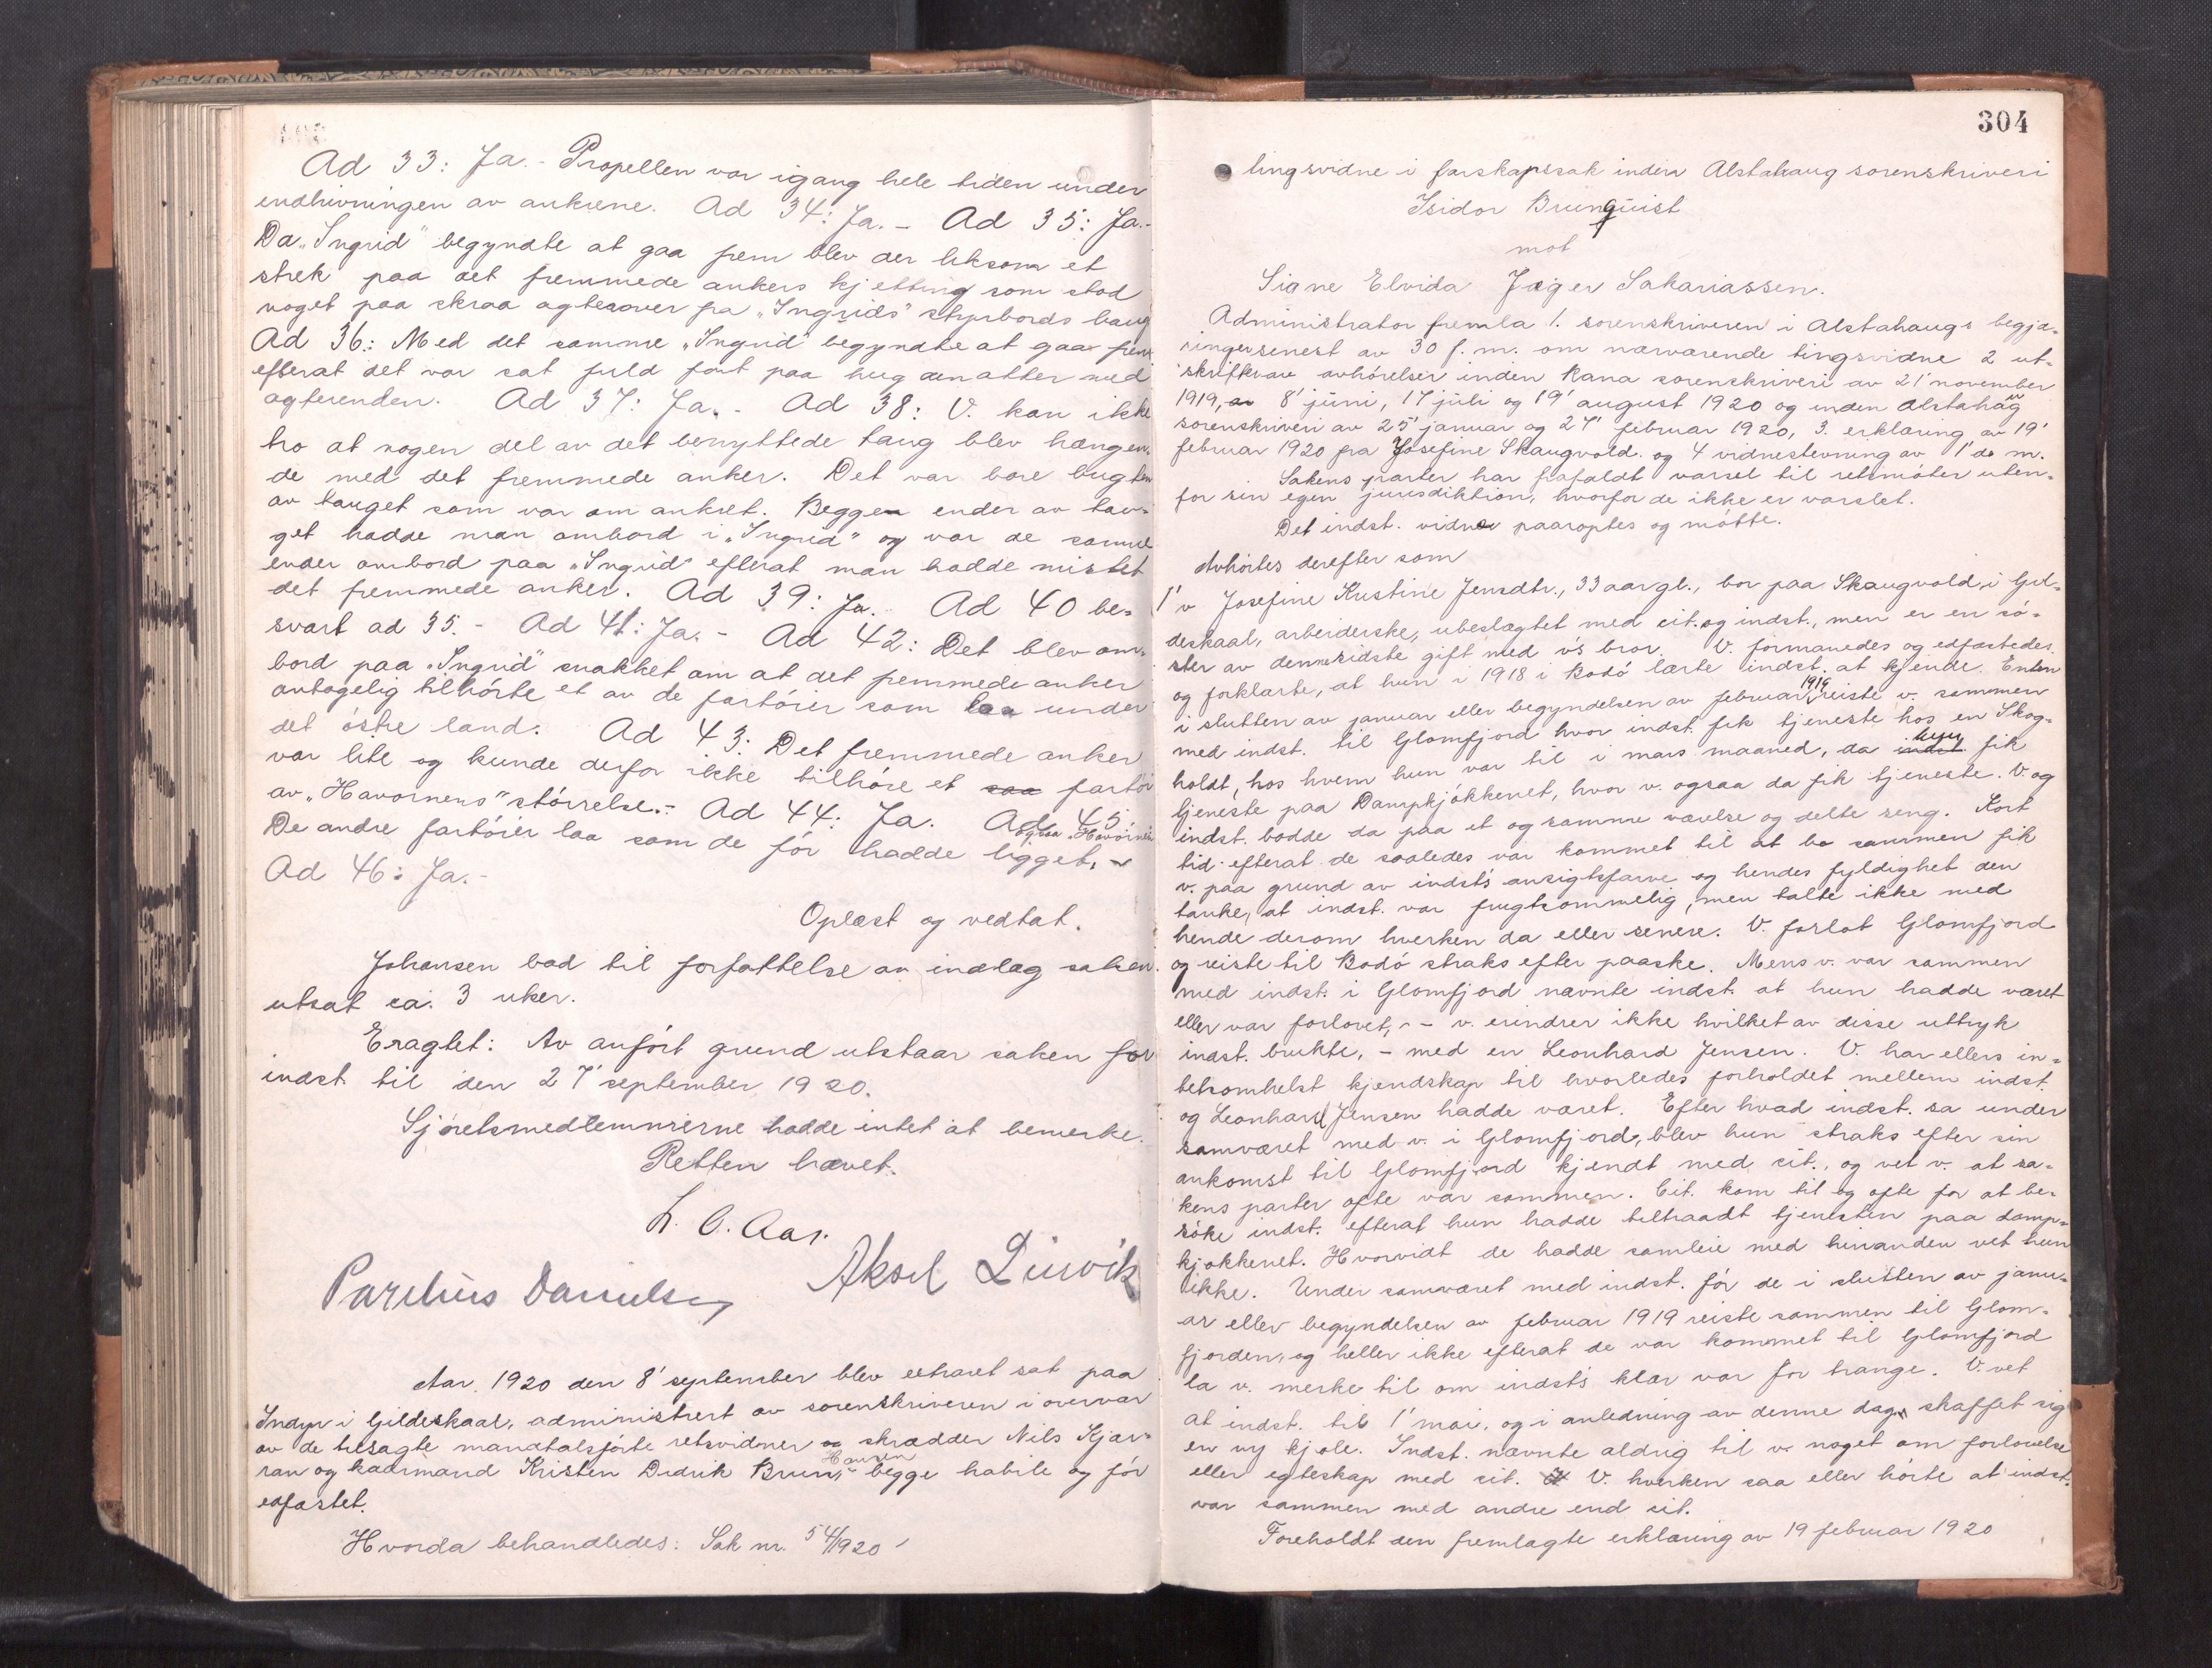 Ad 33: Ja. - Propellen var igang hele tiden under
indhivningen av ankrene. Ad 34: Ja. - Ad 35: Ja. -
Da "Ingrid" begyndte at gaa frem blev der liksom et
strek paa det fremmede ankers kjetting som stod
noget paa skraa agterover fra "Ingrids" styrbords baug
Ad 36: Med det samme "Ingrid" begyndte at gaa frem
efterat det var sat fuld fart paa hug den atter ned
agterenden. Ad 37: Ja. - Ad 38: V. kan ikke
tro at nogen del av det benyttede taug blev hængen-
de med det fremmede anker. Det var bare bugten
av tauget som var om ankret. Begge ender av tau-
get hadde man ombord i "Ingrid" og var de samme
ender ombord paa "Ingrid" efterat man hadde mistet
det fremmede anker. Ad 39: Ja. Ad 40 be-
svart ad 35. - Ad 41: Ja. - Ad 42: Det blev om-
bord paa "Ingrid" snakket om at det fremmede anker
antagelig tilhörte et av de fartöier som laa under
det östre land. Ad 43: Det fremmede anker
var lite og kunde derfor ikke tilhöre et saa fartöi
av "Havörnens" störrelse. - Ad 44: Ja. Ad 45
De andre fartöier laa som de för hadde ligget, ogsaa "Havörnen"
Ad 46: Ja. -
Oplæst og vedtat.
Johansen bad til forfattelse av indlæg saken
utsat ca. 3 uker.
Eragtet: Av anfört grund utstaar saken for
indst. til den 27' september 1920.
Sjöretsmedlemmerne hadde intet at bemerke.
Retten hævet.
L. C. Aar.
Parelius Danielsen Aksel Lurvik
Aar 1920 den 8' september blev extraret sat paa
Indyr i Gildeskaal, administrert av sorenskriveren i overvær
av de tilsagte mandtalsförte retsvidner og skrædder Nils Kjær-
ran og kaarmand Kristen Didrik Brun Hansen, - begge habile og för
edfæstet.
Hvorda behandledes: Sak nr. 54/1920
304
tingsvidne i farskapssak inden Alstahaug sorenskriveri
Isidor Brunquist
mot
Signe Elvida Jæger Sakariassen.
Administrator fremla 1. sorenskriveren i Alstahaugs begjæ-
ringer senest av 30 f. m. om nærværende tingsvidne 2 ut-
skrift av avhörelser inden Rana sorenskriveri av 21' november
1919, av 8' juni, 17 juli og 19' august 1920 og inden Alstahaug
sorenskriveri av 25' januar og 27' februar 1920, 3. erklæring av 19'
februar 1920 fra Josefine Skaugvold og 4 vidnestevning av 1' ds m.
Sakens parter har frafaldt varsel til retsmöter uten-
for sin egen jurisdiktion, hvorfor de ikke er varslet.
Det indst. vidne paaroptes og mötte.
Avhörtes derefter som
1' v Josefine Kristine Jensdtr., 33 aar gl., bor paa Skaugvold i Gil-
deskaal, arbeiderske, ubeslægtet med cit. og indst., men er en sö-
ster av denne sidste gift med v's bror. V. formanedes og edfæstedes
og forklarte, at hun i 1918 i Bodö lærte indst. at kjende. Enten
i slutten av januar eller begyndelsen av februar 1919 reiste v. sammen
med indst. til Glomfjord hvor indst. fik tjeneste hos en Skog-
holdt, hos hvem hun var til i mars maaned, da indst hun fik
tjeneste paa Dampkjökkenet, hvor v. ogsaa da fik tjeneste. V. og
indst. bodde da paa et og samme værelse og delte seng. Kort
tid efterat de saaledes var kommet til at bo sammen fik
v. paa grund av indst's ansigtsfarve og hendes fyldighet den
tanke, at indst. var frugtsommelig, men talte ikke med
hende derom hverken da eller senere. V. forlot Glomfjord
og reiste til Bodö straks efter paaske. Mens v. var sammen
med indst. i Glomfjord nævnte indst. at hun hadde været
eller var forlovet, - v. erindrer ikke hvilket av disse uttryk
indst. brukte, - med en Leonhard Jensen. V. har ellers in-
tetsomhelst kjendskap til hvorledes forholdet mellem indst.
og Leonhard Jensen hadde været. Efter hvad indst. sa under
samværet med v. i Glomfjord, blev hun straks efter sin
ankomst til Glomfjord kjendt med cit., og vet v. at sa-
kens parter ofte var sammen. Cit. kom til og ofte for at be-
söke indst. efterat hun hadde tiltraadt tjenesten paa damp-
kjökkenet. Hvorvidt de hadde samleie med hinanden vet hun
ikke. Under samværet med indst. för de i slutten av janu-
ar eller begyndelsen av februar 1919 reiste sammen til Glom-
fjorden, og heller ikke efterat de var kommet til Glomfjord
la v. merke til om indst's klær var for trange. V. vet
at indst. til 1' mai, og i anledning av denne dag, skaffet sig
en ny kjole. Indst. nævnte aldrig til v. noget om forlovelse
eller egteskap med cit. V. hverken saa eller hörte at indst.
var sammen med andre end cit.
Foreholdt den fremlagte erklæring av 19 februar 1920